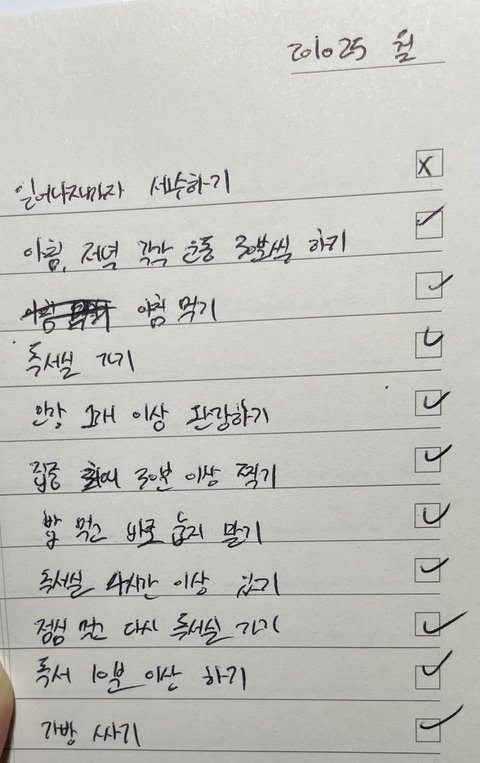 201025 월
X
일어나자마자 세수하기
아침, 저녁 각각 운동 30분씩 하기
아침 먹기
독서실 가기
인강 1개 이상 완강하기
집중 30분 이상 찍기
밥 먹고 바로 눕지 말기
독서실 4시간 이상 있기
점심 먹고 다시 독서실 가기
독서 10분 이상 하기
가방 싸기